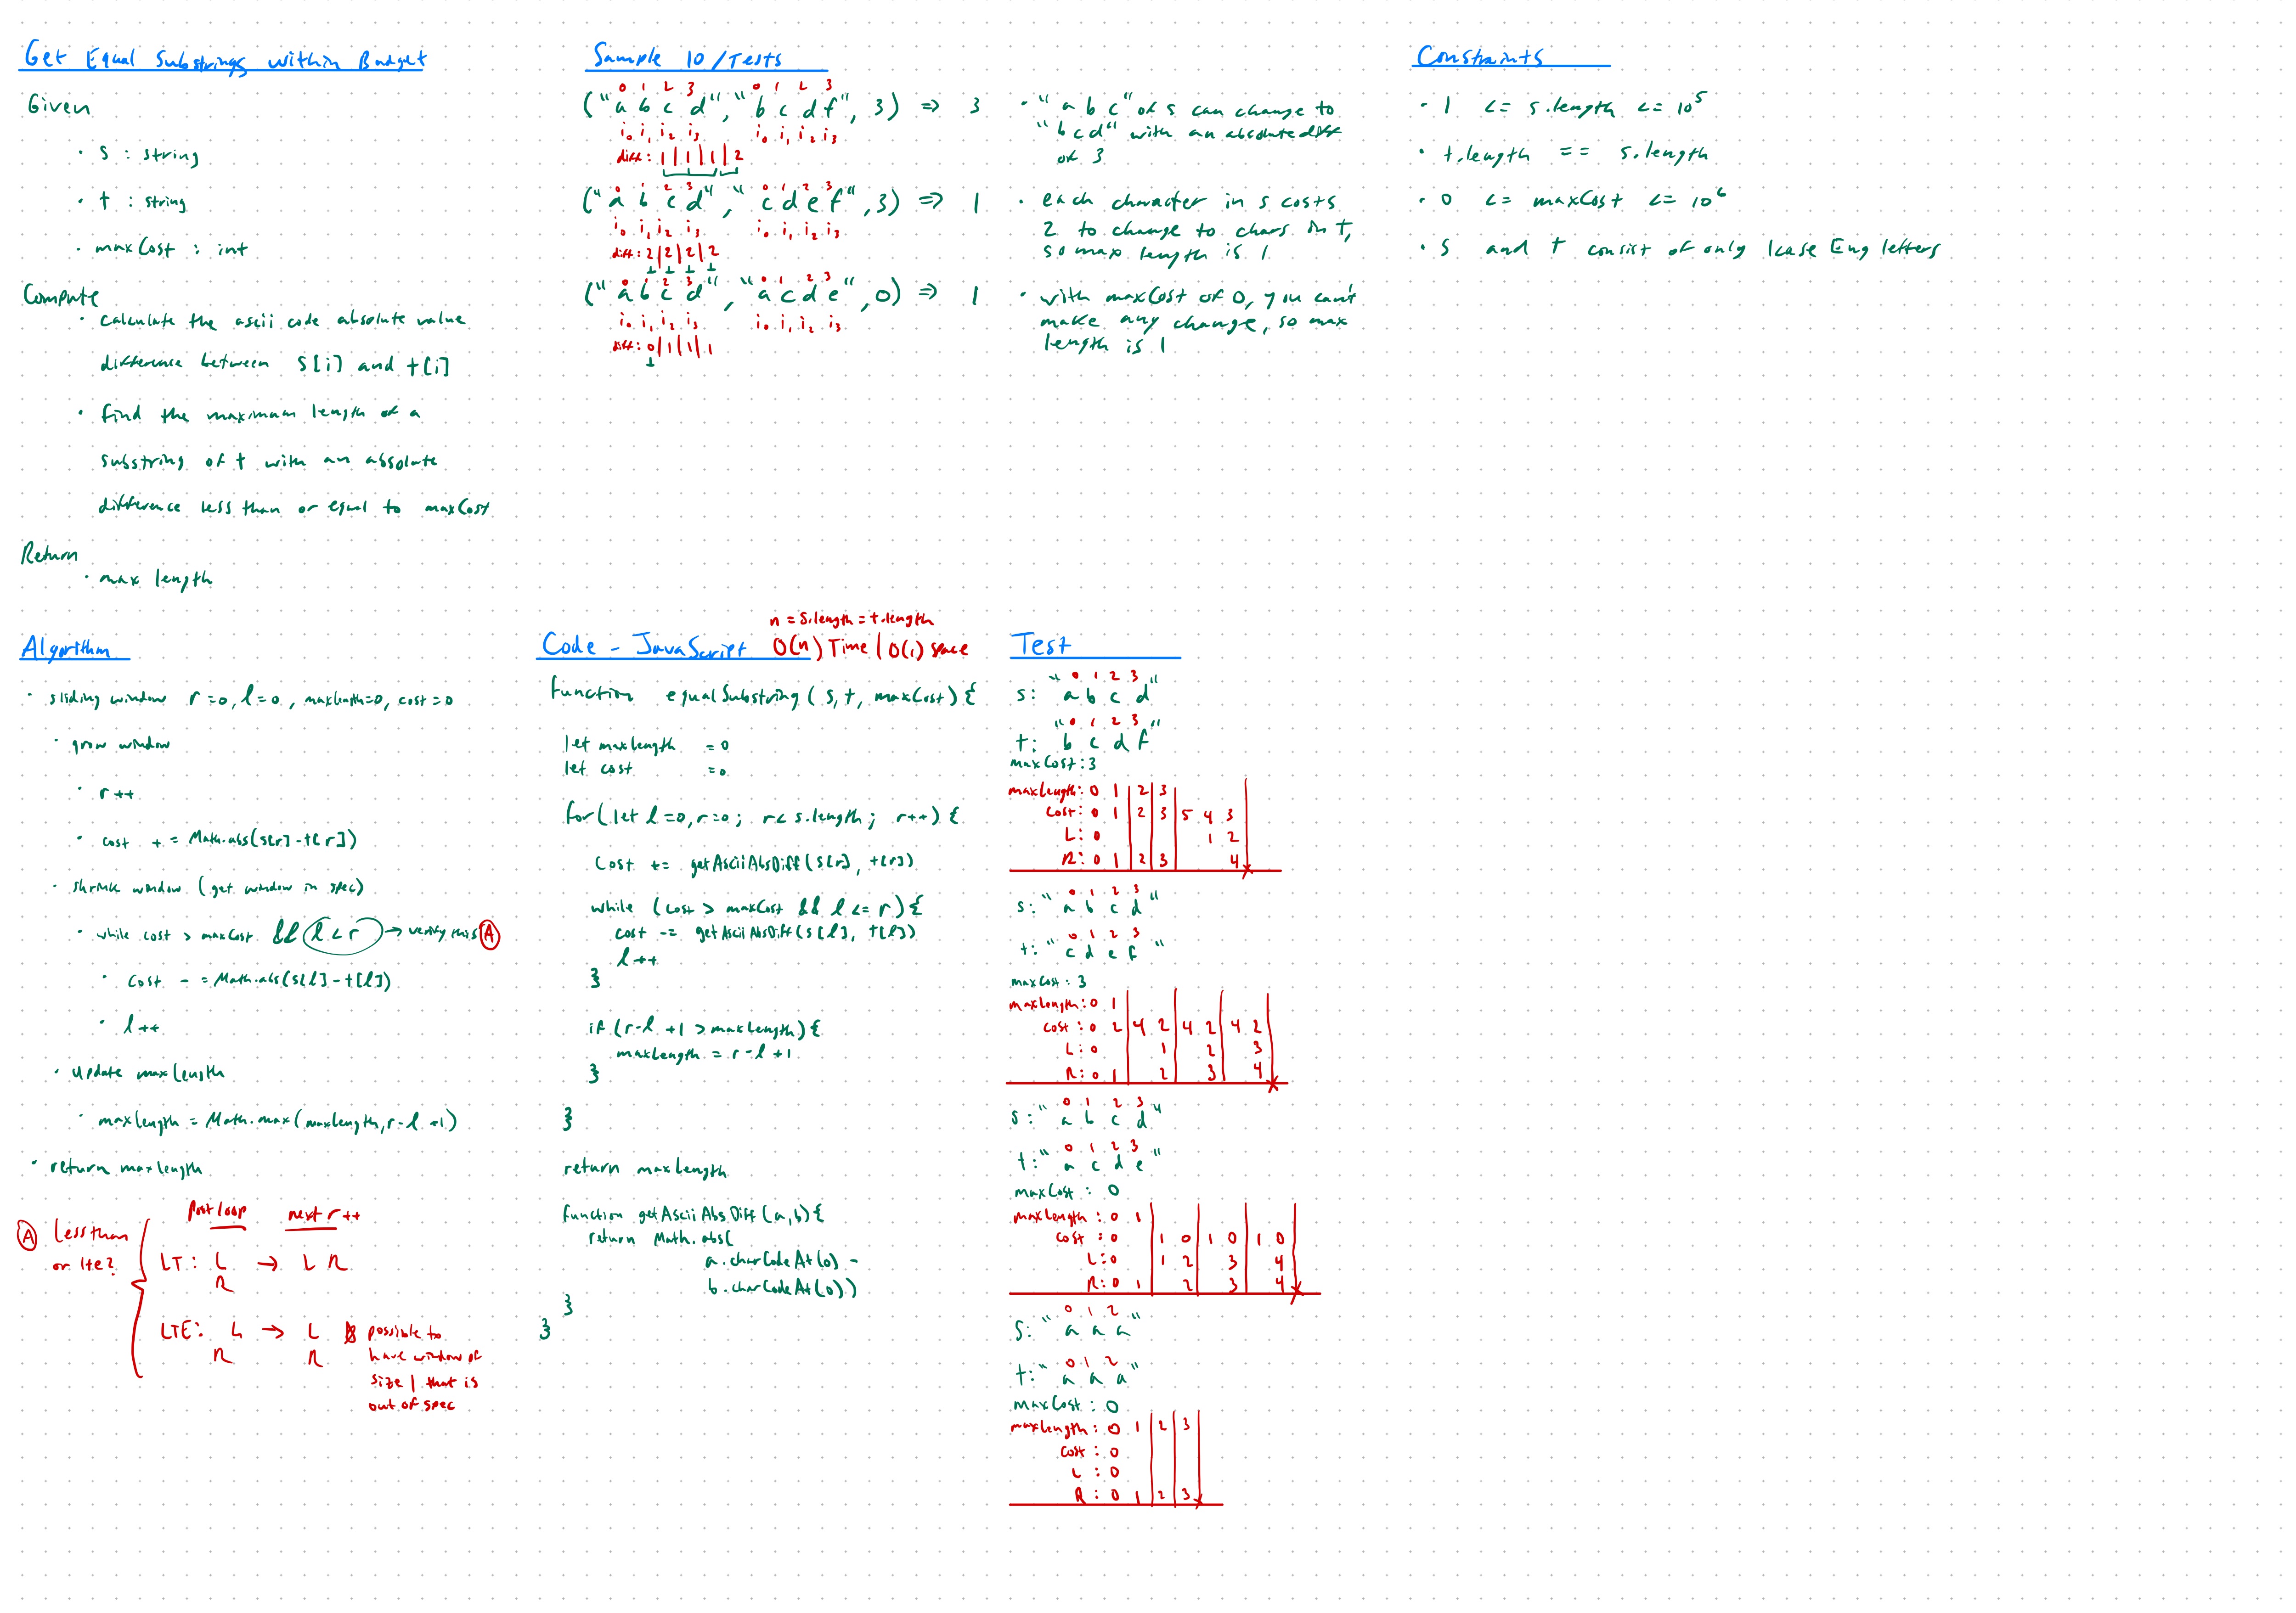 Get Equal Substrings Within Budget
Given
• s : string
• t : string
• maxCost : int
Compute
• calculate the ascii code absolute value
difference between s[i] and t[i]
• find the maximum length of a
substring of t with an absolute
difference less than or equal to maxCost
Return
• max length
Sample IO/Tests
0 1 2 3 0 1 2 3
("a b c d", "b c d f", 3) => 3
i0 i1 i2 i3 i0 i1 i2 i3
diff: 1|1|1|2
• "a b c" of s can change to
"b c d" with an absolute diff
of 3
0 1 2 3 0 1 2 3
("a b c d", "c d e f", 3) => 1
i0 i1 i2 i3 i0 i1 i2 i3
diff: 2|2|2|2
• each character in s costs
2 to change to chars in t,
so max length is 1
0 1 2 3 0 1 2 3
("a b c d", "a c d e", 0) => 1
i0 i1 i2 i3 i0 i1 i2 i3
diff: 0|1|1|1
• with maxCost of 0, you can't
make any change, so max
length is 1
Constraints
• 1 <= s.length <= 10^5
• t.length == s.length
• 0 <= maxCost <= 10^6
• s and t consist of only lcase Eng letters
Algorithm
• sliding window r=0, l=0, maxLength=0, cost=0
• grow window
• r++
• cost += Math.abs(s[r]-t[r])
• shrink window (get window in spec)
• while cost > maxCost && l < r → verify this A
• cost -= Math.abs(s[l]-t[l])
• l++
• update maxLength
• maxLength = Math.max(maxLength, r-l+1)
• return maxLength
A Less than
or lte?
post loop next r++
LT: L → L R
R
LTE: L → L possible to
R R have window of
size 1 that is
out of spec
n = s.length = t.length
Code - JavaScript O(n) Time | O(1) space
function equalSubstring(s, t, maxCost) {
let maxLength = 0
let cost = 0
for(let l=0, r=0; r< s.length; r++) {
cost += getAsciiAbsDiff(s[r], t[r])
while (cost > maxCost && l <= r) {
cost -= getAsciiAbsDiff(s[l], t[l])
l++
}
if (r-l +1 > maxLength) {
maxLength = r-l+1
}
}
return maxLength
function getAsciiAbsDiff(a,b) {
return Math.abs(
a.charCodeAt(0) -
b.charCodeAt(0))
}
}
Test
0 1 2 3
s: "a b c d"
0 1 2 3
t: "b c d f"
maxCost: 3
maxLength: 0 1 2 3
cost: 0 1 2 3 5 4 3
L: 0 1 2
R: 0 1 2 3 4
0 1 2 3
s: "a b c d"
0 1 2 3
t: "c d e f"
maxCost: 3
maxLength: 0 1
cost: 0 2 4 2 4 2 4 2
L: 0 1 2 3
R: 0 1 2 3 4
0 1 2 3
s: "a b c d"
0 1 2 3
t: "a c d e"
maxCost: 0
maxLength: 0 1
cost: 0 1 0 1 0 1 0
L: 0 1 2 3 4
R: 0 1 2 3 4
0 1 2
s: "a a a"
0 1 2
t: "a a a"
maxCost: 0
maxLength: 0 1 2 3
cost: 0
L: 0
R: 0 1 2 3